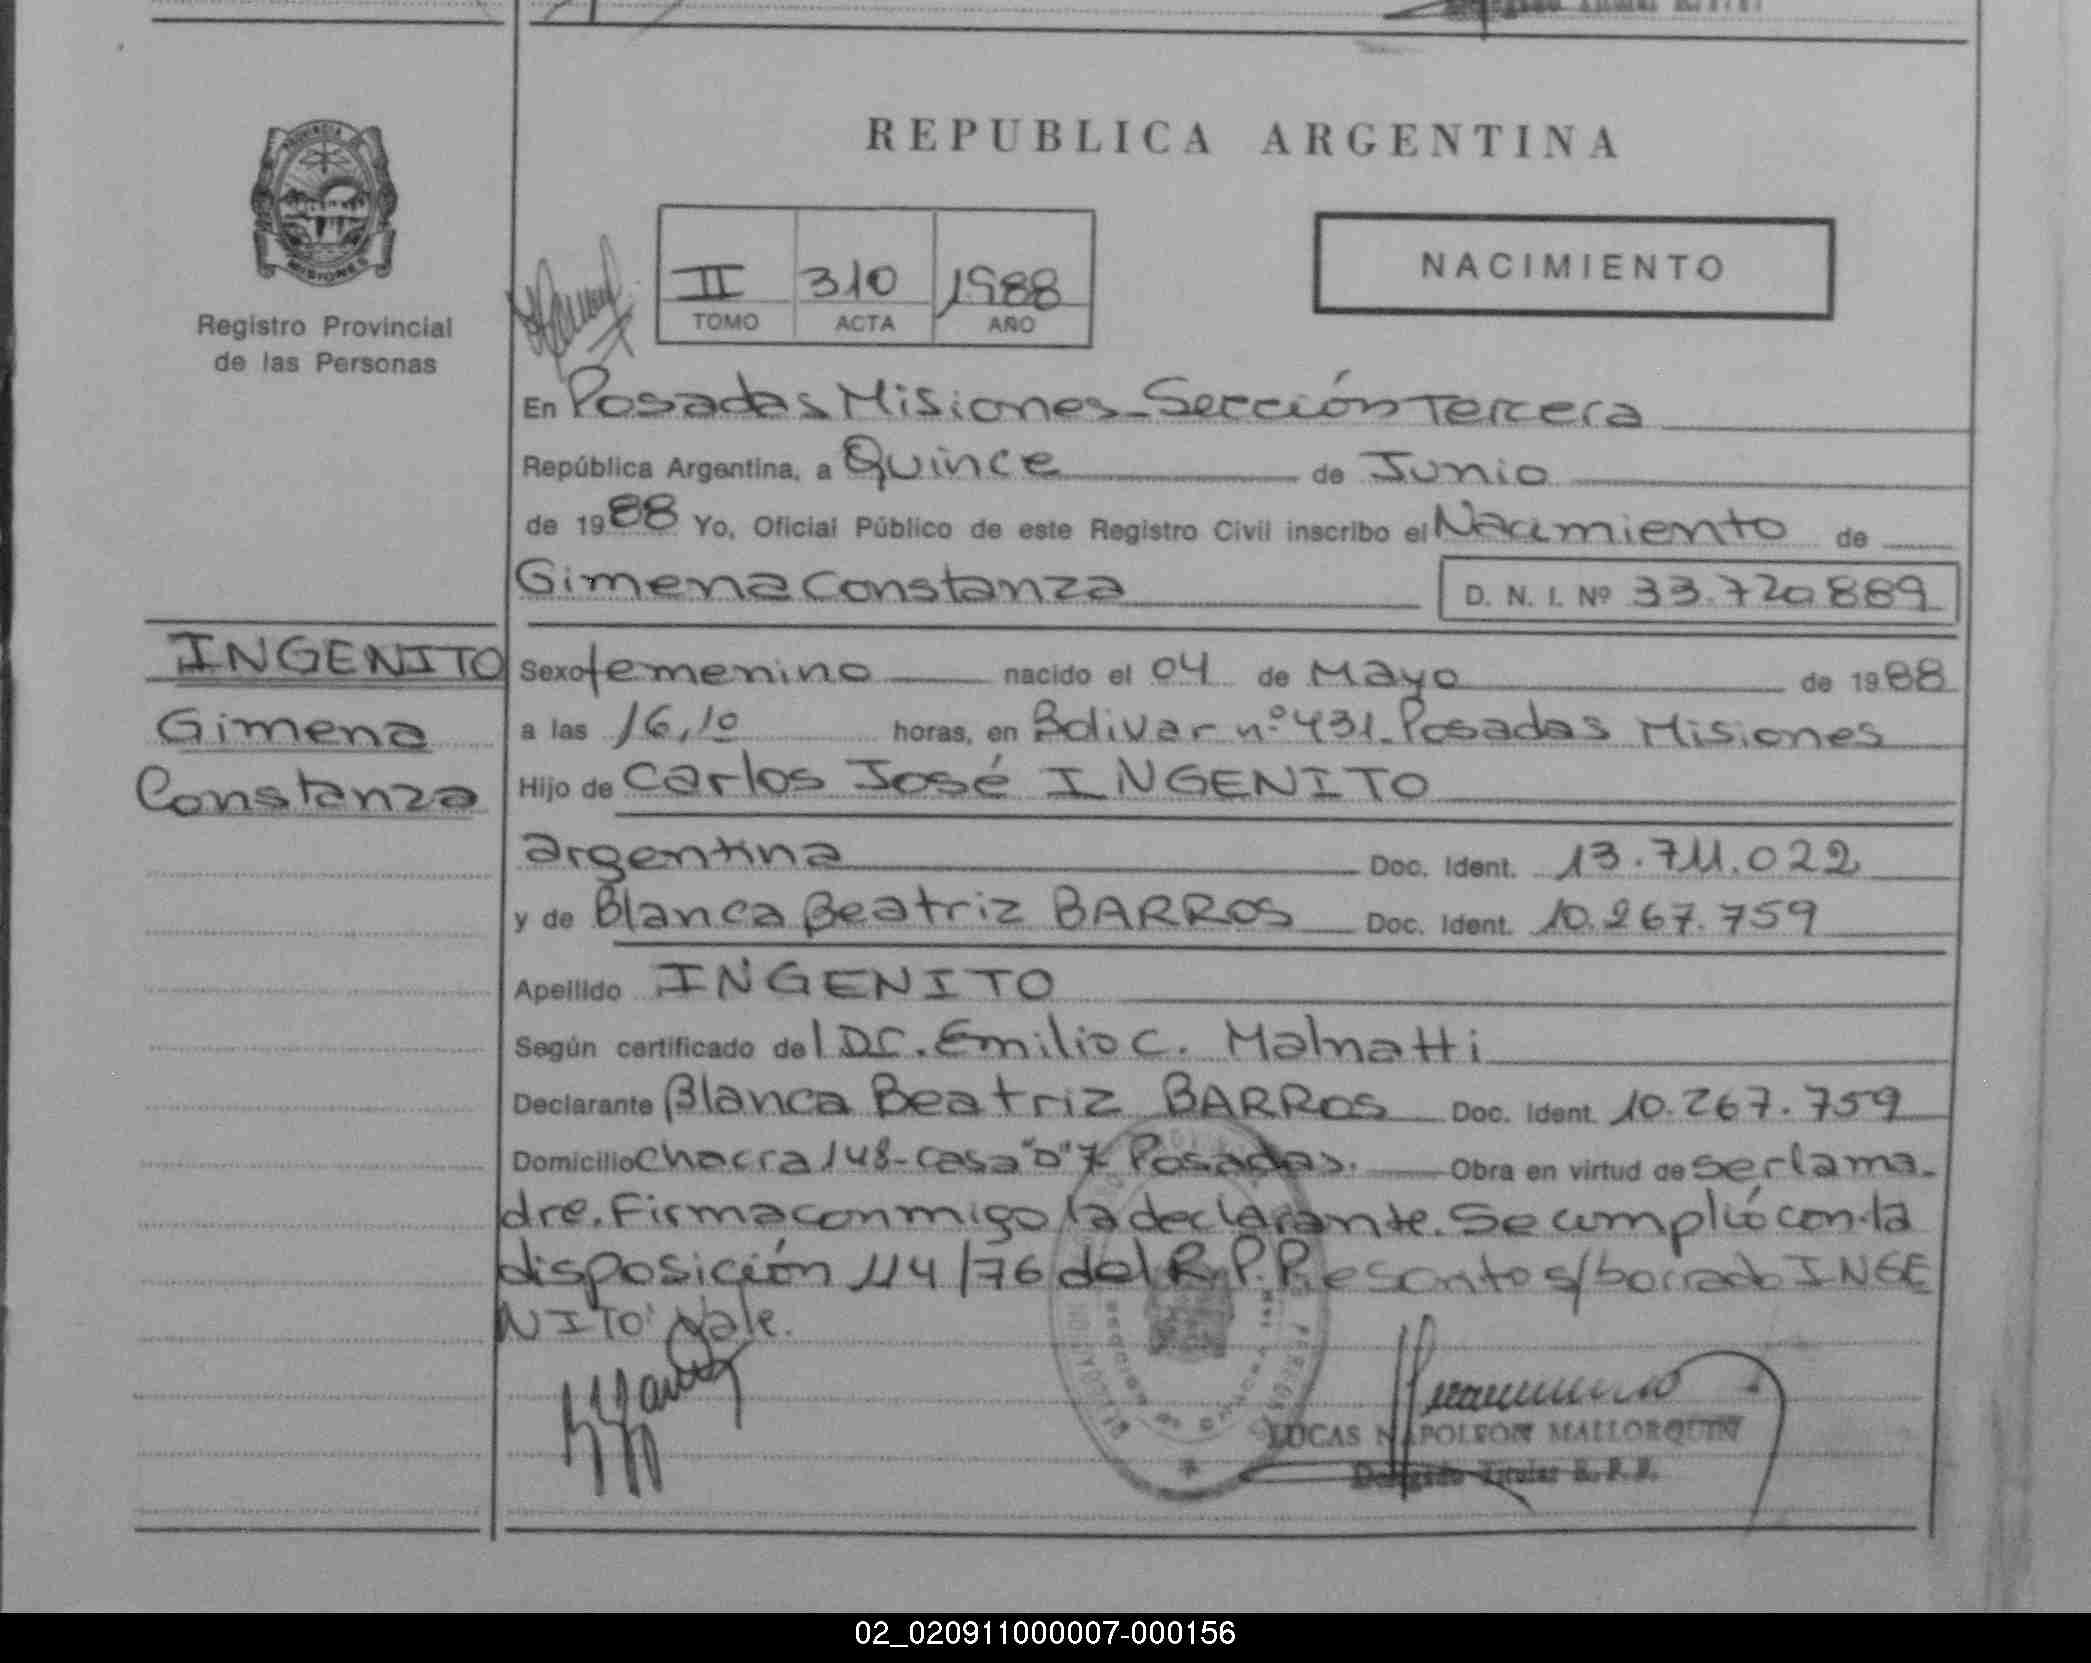 REPUBLICA ARGENTINA
PROVINCIA
MISIONES
Registro Provincial
de las Personas
II 310 1988
TOMO ACTA AÑO
NACIMIENTO
En Posadas Misiones - Sección Tercera
República Argentina, a Quince de Junio
de 1988 Yo, Oficial Público de este Registro Civil inscribo el Nacimiento de
Gimena Constanza D. N. I. Nº 33.720.889
INGENITO
Gimena
Constanza
Sexo femenino nacido el 04 de Mayo de 1988
a las 16,10 horas, en Bolivar nº 431 - Posadas Misiones
Hijo de Carlos José INGENITO
argentina Doc. Ident. 13.711.022
y de Blanca Beatriz BARROS Doc. Ident. 10.267.759
Apellido INGENITO
Según certificado del Dr. Emilio C. Malnatti
Declarante Blanca Beatriz BARROS Doc. Ident. 10.267.759
Domicilio Chacra 148 - casa "D" 7 Posadas. Obra en virtud de ser la ma-
dre. Firma conmigo la declarante. Se cumplió con la
disposición 114/76 del R.P.P. escrito s/borrado INGE
NITO Vale.
LUCAS NAPOLEON MALLORQUIN
Delegado Titular R. P. P.
02_020911000007-000156